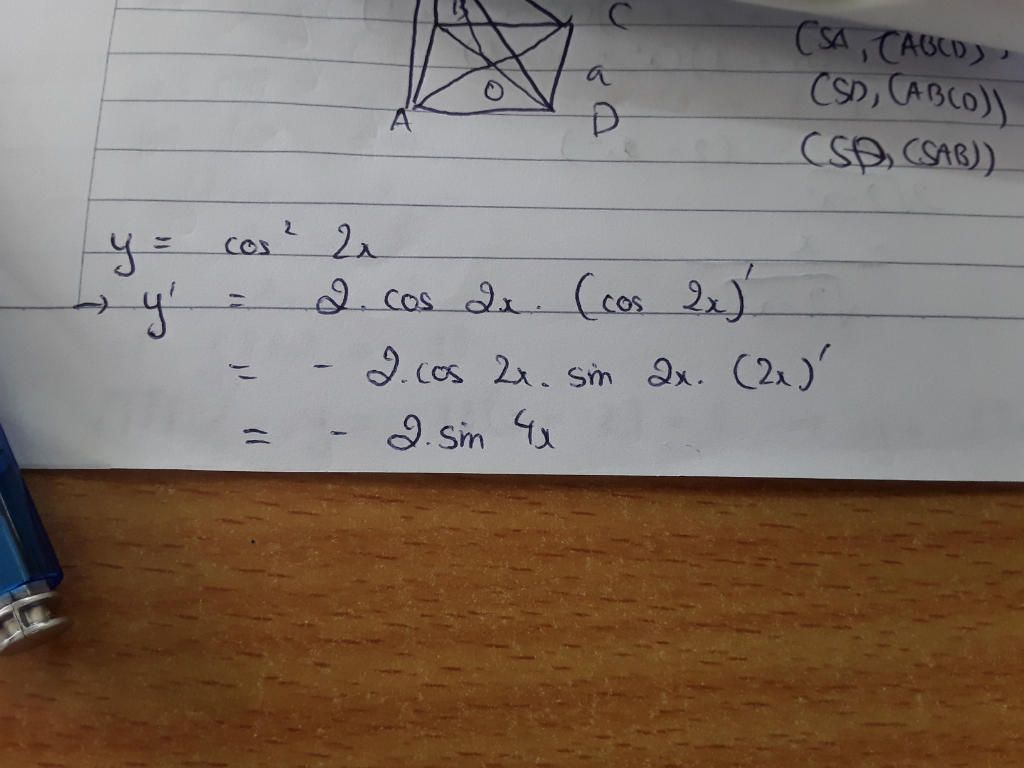 B
C
(SA, (ABCD),
a
(SD, (ABCD))
O
A
D
(SD, (SAB))
y = cos² 2x
→ y' = 2. cos 2x. (cos 2x)'
= - 2. cos 2x. sin 2x. (2x)'
= - 2. sin 4x